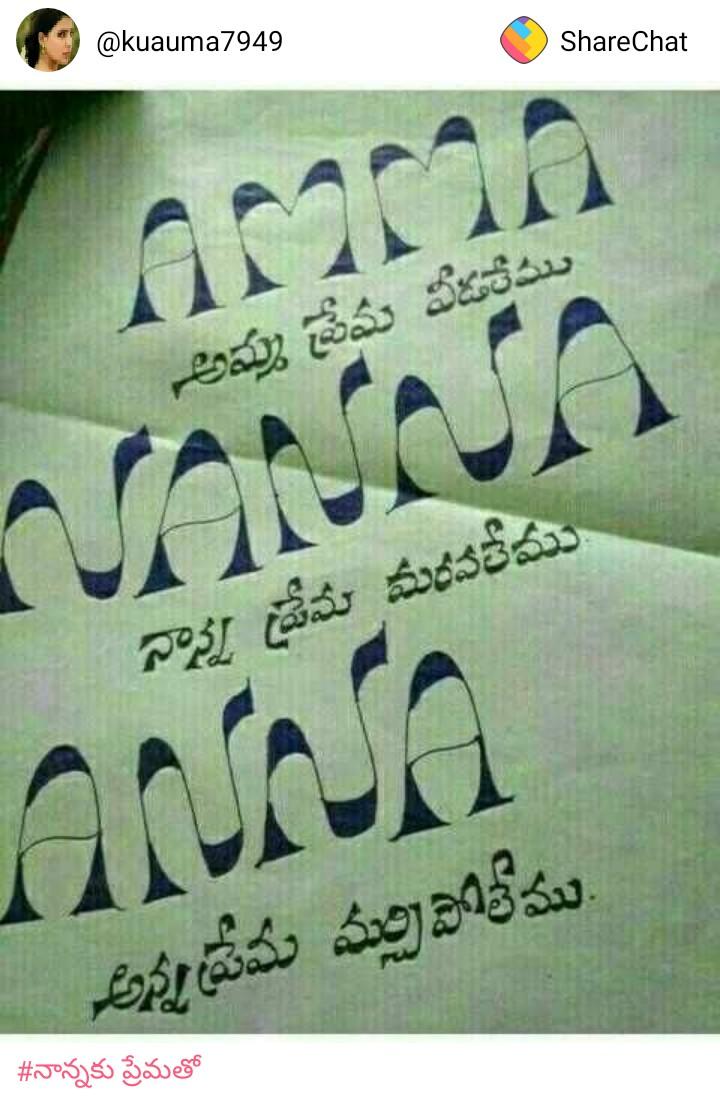 @kuauma7949 ShareChat
AMMA
అమ్మ ప్రేమ వీడలేము
NANNA
నాన్న ప్రేమ మరవలేము.
ANNA
అన్న ప్రేమ మర్చిపోలేము.
#నాన్నకు ప్రేమతో